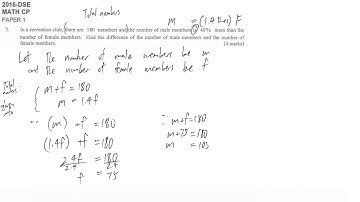 2016-DSE
MATH CP
PAPER 1
Total members
m = (1.4 f
5. In a recreation club, there are 180 members and the number of male members is 40% more than the
number of female members. Find the difference of the number of male members and the number of
female members. (4 marks)
Let the number of male members be m
and the number of female members be f
Total
m + f = 180
m = 1.4f
(m) + f = 180
(1.4f) + f = 180
2.4f = 180
2.4 2.4
f = 75
∵ m+f=180
m+75=180
m = 105